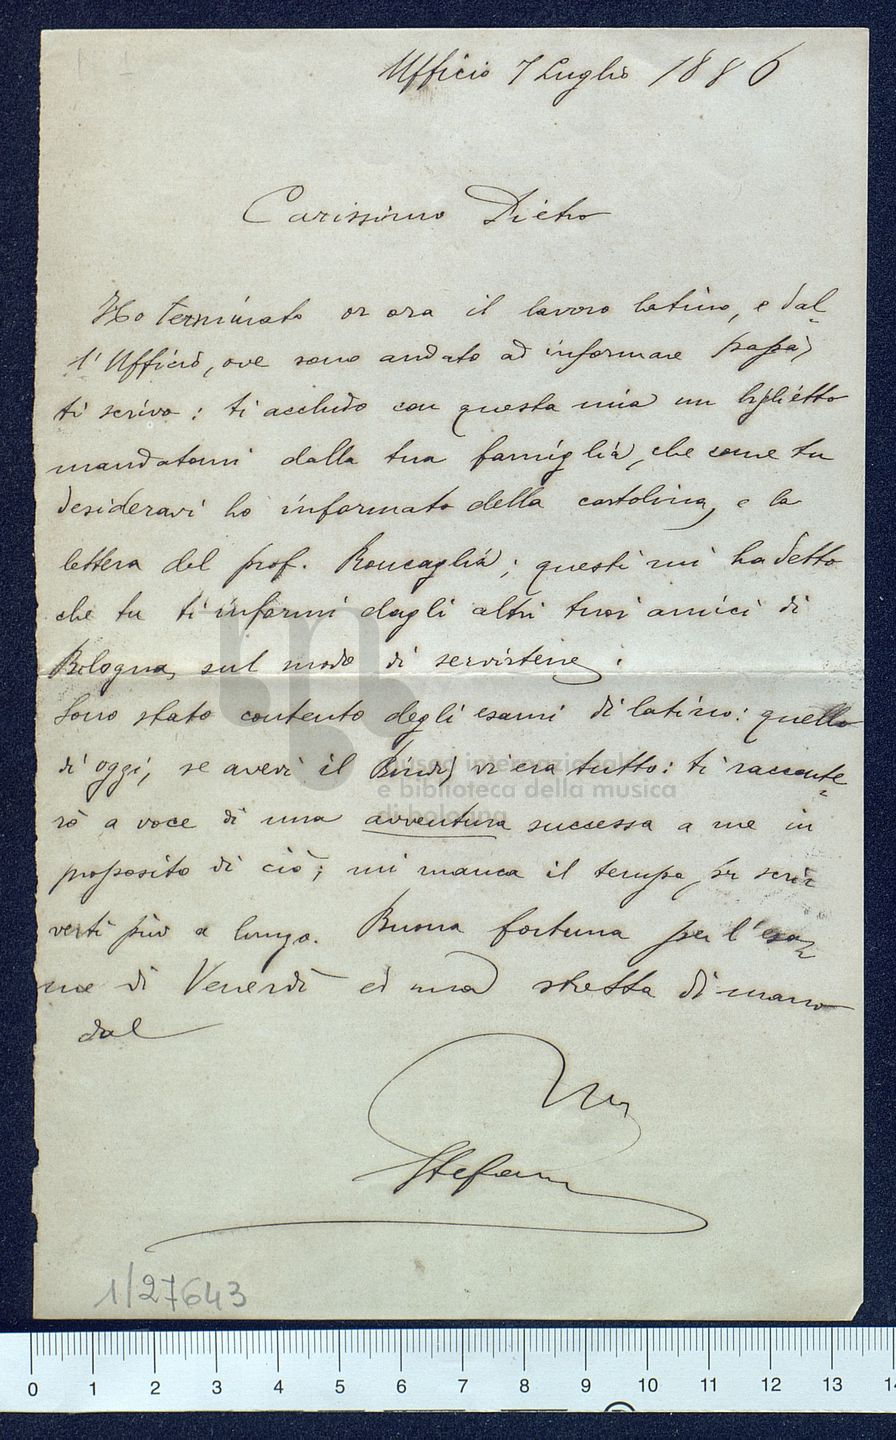 Ufficio 7 Luglio 1886
Carissimo Pietro
Ho terminato or ora il lavoro latino, e dal-
l'Ufficio, ove sono andato ad informare papà,
ti scrivo: ti accludo con questa mia un biglietto
mandatomi dalla tua famiglia, che come tu
desideravi ho informato della cartolina, e la
lettera del prof. Roncaglia; questi mi ha detto
che tu ti informi dagli altri tuoi amici di
Bologna, sul modo di servirtene.
Sono stato contento degli esami di latino: quello
di oggi, se avevi il Bindi, vi era tutto: ti racconte-
rò a voce di una avventura successa a me in
proposito di ciò; mi manca il tempo per scri-
verti più a lungo. Buona fortuna per l'esa-
me di Venerdì ed una stretta di mano
dal
Stefani
1/27643
museo internazionale
e biblioteca della musica
di bologna
0 1 2 3 4 5 6 7 8 9 10 11 12 13 14